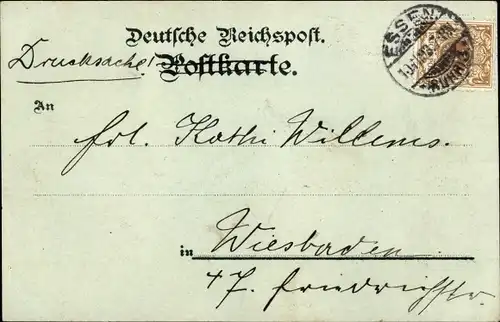 Deutsche Reichspost.
Drucksache! Postkarte.
ESSEN
RUHR
An
Frl. Käthi Willems.
in Wiesbaden
47. Friedrichstr.